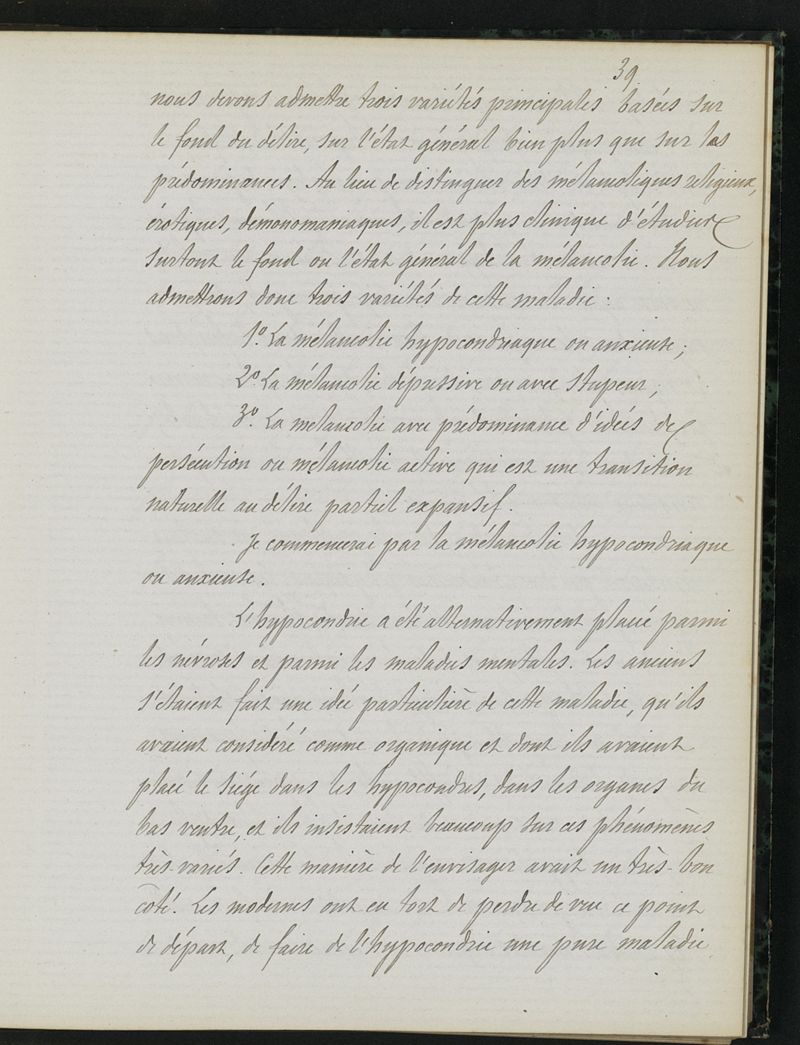 39.
nous devons admettre trois variétés principales basées sur
le fond du délire, sur l'état général bien plus que sur les
prédominances. Au lieu de distinguer des mélancoliques religieux,
érotiques, démonomaniaques, il est plus clinique d'étudier
surtout le fond ou l'état général de la mélancolie. Nous
admettrons donc trois variétés de cette maladie :
1.º La mélancolie hypocondriaque ou anxieuse ;
2.º La mélancolie dépressive ou avec stupeur ;
3.º La mélancolie avec prédominance d'idées de
persécution ou mélancolie active qui est une transition
naturelle au délire partiel expansif.
Je commencerai par la mélancolie hypocondriaque
ou anxieuse.
L'hypocondrie a été alternativement placée parmi
les névroses et parmi les maladies mentales. Les anciens
s'étaient fait une idée particulière de cette maladie, qu'ils
avaient considéré comme organique et dont ils avaient
placé le siége dans les hypocondres, dans les organes du
bas ventre, et ils insistaient beaucoup sur ces phénomènes
très-variés. Cette manière de l'envisager avait un très-bon
coté. Les modernes ont eu tort de perdre de vue ce point
de départ, de faire de l'hypocondrie une pure maladie